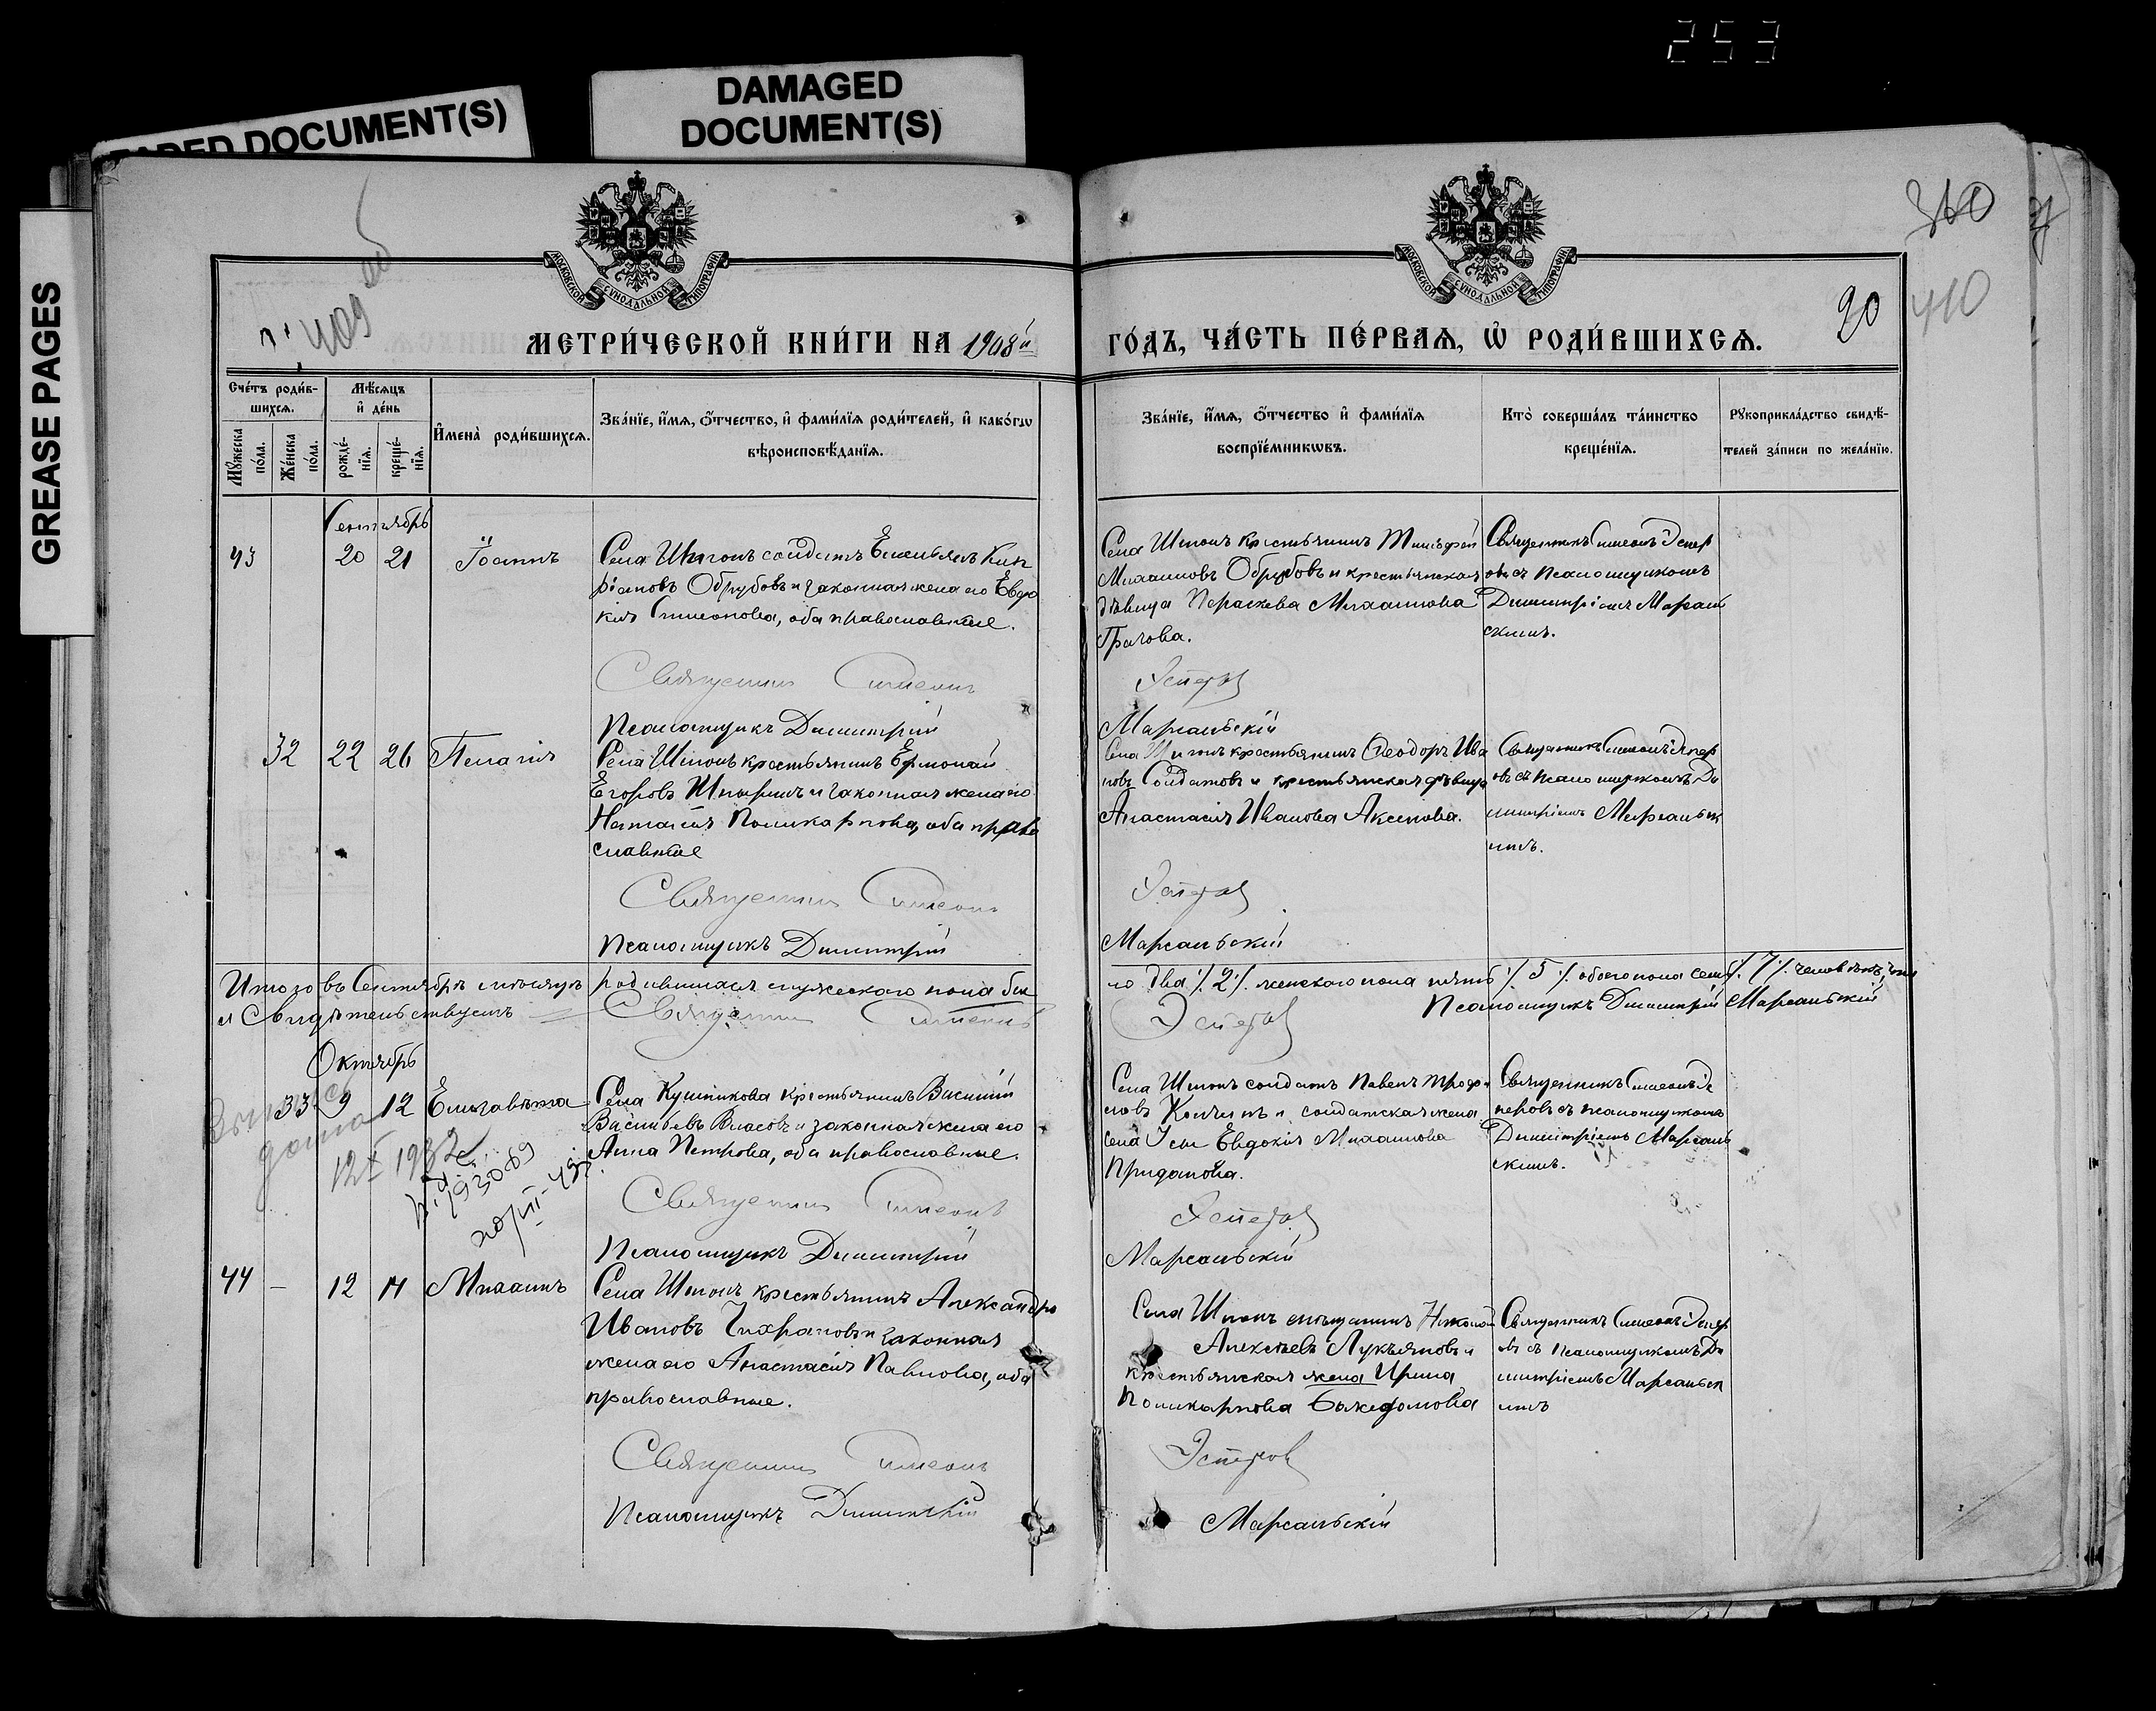 253
DAMAGED
DOCUMENT(S)
DOCUMENT(S)
GREASE PAGES
360
410
20
409 об
МОСКОВСКОЙ СУНОДАЛЬНОЙ ТИПОГРАФІИ
МОСКОВСКОЙ СУНОДАЛЬНОЙ ТИПОГРАФІИ
МЕТРИ́ЧЕСКОЙ КНИ́ГИ НА 1908й
ГО́ДЪ, ЧА́СТЬ ПЕ́РВАѦ, Ѡ҆ РОДИ́ВШИХСѦ.
Сче́тъ роди́в-
шихсѧ.
Мꙋ́жеска по́ла.
Же́нска по́ла.
Мѣ́сѧцъ
и҆ де́нь
рожде́-
нїѧ.
креще́-
нїѧ.
И҆мена̀ роди́вшихсѧ.
Зва́нїе, и҆́мѧ, ѻ҆́тчество, и҆ фами́лїѧ роди́телей, и҆ како́гѡ
вѣроисповѣ́данїѧ.
Зва́нїе, и҆́мѧ, ѻ҆́тчество и҆ фами́лїѧ
воспрїе́мникѡвъ.
Кто̀ соверша́лъ та́инство
креще́нїѧ.
Рꙋкоприкла́дство свидѣ́-
телей за́писи по жела́нїю.
Сентябрь
43 20 21 Іоаннъ
Села Шипонъ солдатъ Емельянъ Кип
ріановъ Обрубовъ и законная жена его Евдо
кія Симеонова, оба православные.
Священникъ Симеонъ
Псаломщикъ Димитрій
Села Шипонъ крестьянинъ Тимофей
Михаиловъ Обрубовъ и крестьянская
дѣвица Параскева Михаилова
Грачова.
Эсперов
Марсальскій
Священникъ Симеонъ Эспер
овъ съ псаломщикомъ
Димитріемъ Марсаль
скимъ.
32 22 26 Пелагія
Села Шипонъ крестьянинъ Ермолай
Егоровъ и законная жена его
Наталія Поликарпова, оба право
славные
Священникъ Симеонъ
Псаломщикъ Димитрій
Села Шипонъ крестьянинъ Ѳеодоръ Ива
новъ Солдатовъ и крестьянская дѣвица
Анастасія Иванова Аксенова.
Эсперов
Марсальскій
Священникъ Симеонъ Эспер
овъ съ псаломщикомъ Ди
митріемъ Марсальск
имъ.
Итого въ Сентябрѣ мѣсяцѣ родившихся мужескаго пола бы
ло два /.2./. женскаго пола пять /.5./. обоего пола семь /.7./. человѣкъ, что
и Свидѣтельствуемъ Священникъ Симеонъ
Эсперов Псаломщикъ Димитрій Марсальскій
Октябрь
33 9 12 Елизавета
12 X 1932
Села Кушникова крестьянинъ Василій
Васильевъ Власовъ и законная жена его
Анна Петрова, оба православные.
Священникъ Симеонъ
Псаломщикъ Димитрій
Села Шипонъ солдатъ Павелъ
и солдатская жена
села Евдокія Михаилова
Приданова.
Эсперов
Марсальскій
Священникъ Симеонъ Эс
перовъ съ псаломщикомъ
Димитріемъ Марсаль
скимъ.
44 – 12 14 Михаилъ
Села Шипонъ крестьянинъ Александръ
Ивановъ Чихрановъ и законная
жена его Анастасія Павлова, оба
православные.
Священникъ Симеонъ
Псаломщикъ Димитрій
Села Шипонъ мѣщанинъ Николай
Алексѣевъ Лукьяновъ и
крестьянская жена Ирина
Поликарпова Бажедомова
Эсперов
Марсальскій
Священникъ Симеонъ Эспер
овъ съ псаломщикомъ Ди
митріемъ Марсальск
имъ